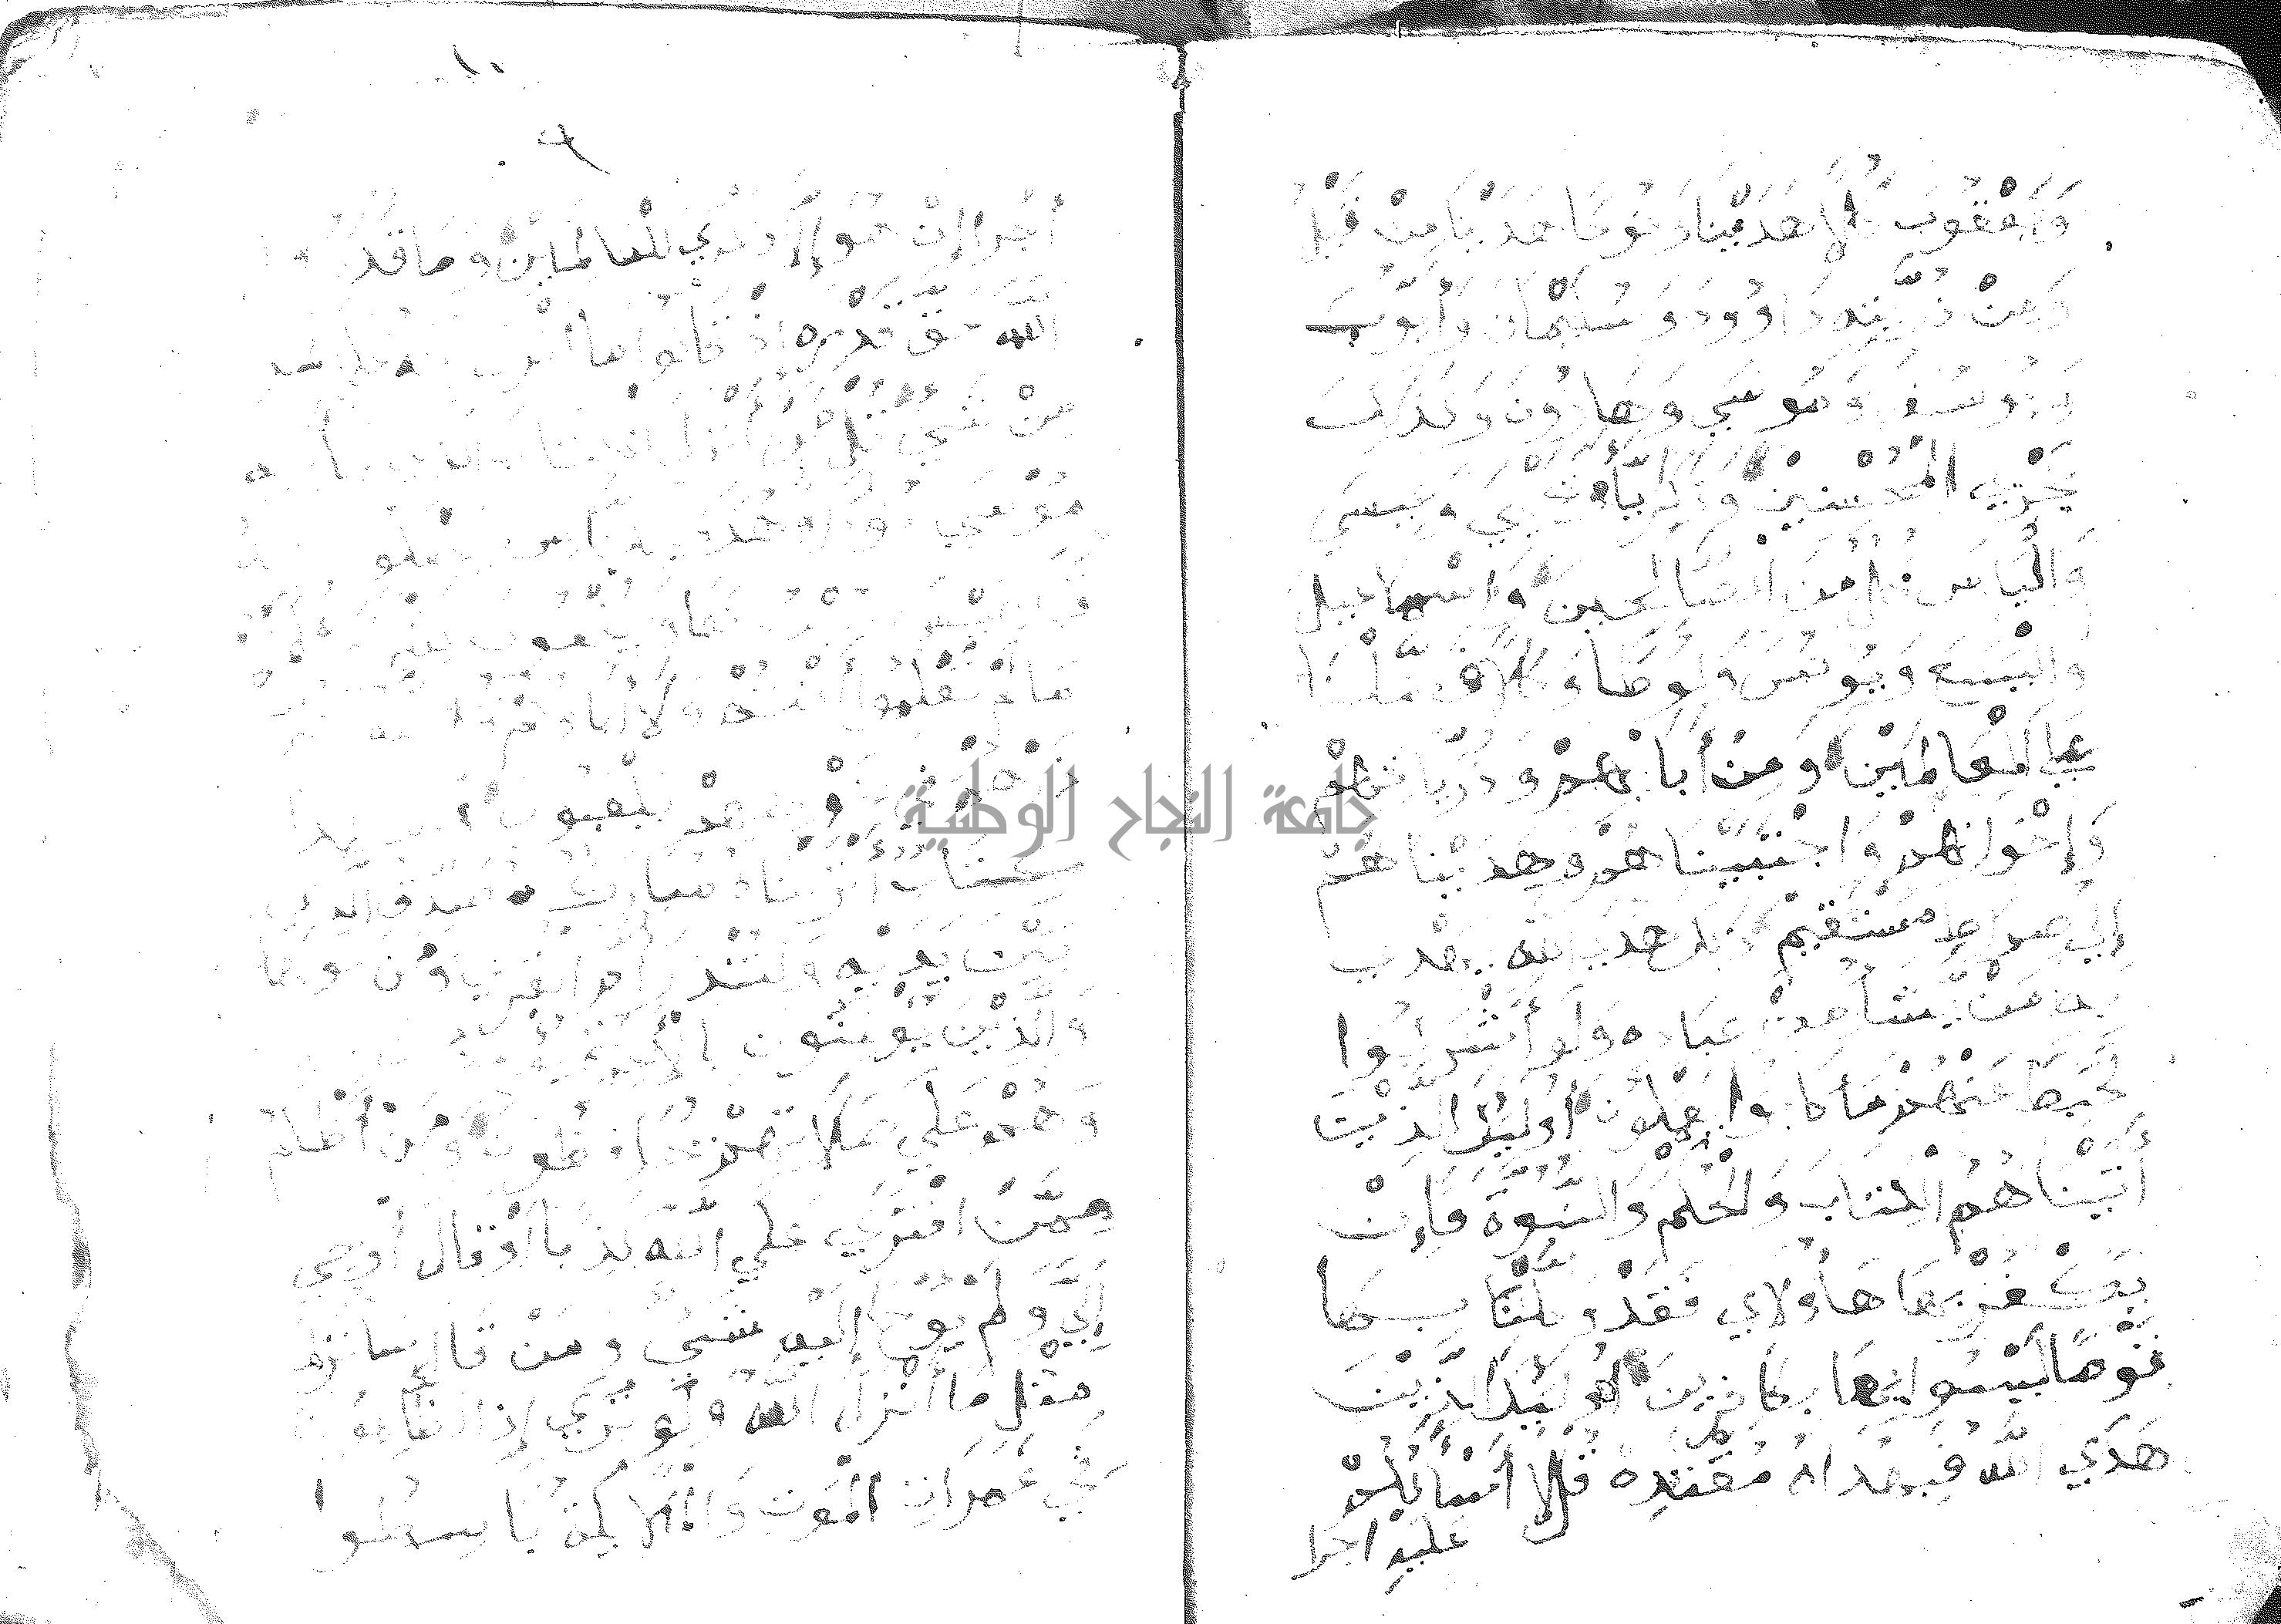 وَيَعْقُوبَ كُلًّا هَدَيْنَا وَنُوحًا هَدَيْنَا مِنْ قَبْلُ
وَمِنْ ذُرِّيَّتِهِ دَاوُودَ وَسُلَيْمَانَ وَأَيُّوبَ
وَيُوسُفَ وَمُوسَي وَهَارُونَ وَكَذَلِكَ
نَجْزِي الْمُحْسِنِينَ وَزَكَرِيَّاءَ وَيَحْيَي وَعِيسَي
وَالْيَاسَ كُلٌّ مِنَ الصَّالِحِينَ وَاسْمَاعِيلَ
وَالْيَسَعَ وَيُونُسَ وَلُوطًا وَكُلًّا فَضَّلْنَا
عَلَي الْعَالَمِيْنَ وَمِنْ أَبَائِهِمْ وَذُرِّيَاتِهِمْ
وَإِخْوَانِهِمْ وَاجْتَبَيْنَاهُمْ وَهَدَيْنَاهُمْ
إِلَي صِرَاطٍ مُسْتَقِيْمٍ ذَلِكَ هُدَي اللَّهِ يَهْدِي
بِهِ مَنْ يَشَاءُ مِنْ عِبَادِهِ وَلَوْ أَشْرَكُوا
لَحَبِطَ عَنْهُمْ مَا كَانُوا يَعْمَلُونَ أُولَئِكَ الَّذِيْنَ
أَتَيْنَاهُمُ الْكِتَابَ وَالْحُكْمَ وَالنُّبُوَّةَ فَإِنْ
يَكْفُرْ بِهَا هَاؤُلَاءِ فَقَدْ وَكَّلْنَا بِهَا
قَوْمًا لَيْسُوا بِهَا بِكَافِرِينَ أُولَئِكَ الَّذِيْنَ
هَدَي اللَّهُ فَبِهُدَاهُمُ اقْتَدِهْ قُلْ لَا أَسْأَلُكُمْ
عَلَيْهِ اجرا
١٠
أَجْرًا إِنْ هُوَ إِلَّا ذِكْرَي لِلْعَالَمِيْنَ وَمَا قَدَرُوا
اللَّهَ حَقَّ قَدْرِهِ إِذْ قَالُوا مَا أَنْزَلَ
مِنْ شَيْءٍ قُلْ مَنْ أَنْزَلَ الْكِتَابَ الَّذِي جَاءَ بِهِ
مُوسَي نُورًا وَهُدًي لِلنَّاسِ تَجْعَلُونَهُ
قَرَاطِيْسَ تُبْدُونَهَا وَتُخْفُونَ كَثِيْرًا وَعُلِّمْتُمْ
مَا لَمْ تَعْلَمُوا أَنْتُمْ وَلَا أَبَاؤُكُمْ قُلِ اللَّهُ
ثُمَّ ذَرْهُمْ فِي خَوْضِهِمْ يَلْعَبُونَ وَهَذَا
كِتَابٌ أَنْزَلْنَاهُ مُبَارَكٌ مُصَدِّقُ الَّذِي
بَيْنَ يَدَيْهِ وَلِتُنْذِرَ أُمَّ الْقُرَي وَمَنْ حَوْلَهَا
وَالَّذِيْنَ يُؤْمِنُونَ بِالْأَخِرَةِ يُؤْمِنُونَ بِهِ
وَهُمْ عَلَي صَلَاتِهِمْ يُحَافِظُونَ وَمَنْ أَظْلَمُ
مِمَّنَ افْتَرَي عَلَي اللَّهِ كَذِبًا أَوْ قَالَ أُوحِيَ
إِلَيَّ وَلَمْ يُوحَ إِلَيْهِ شَيْءٌ وَمَنْ قَالَ سَأُنْزِلُ
مِثْلَ مَا أَنْزَلَ اللَّهُ وَلَوْ تَرَي إِذِ الظَّالِمُونَ
فِي غَمَرَاتِ الْمَوْتِ وَالْمَلَائِكَةُ بَاسِطُوا
جامعة النجاح الوطنية